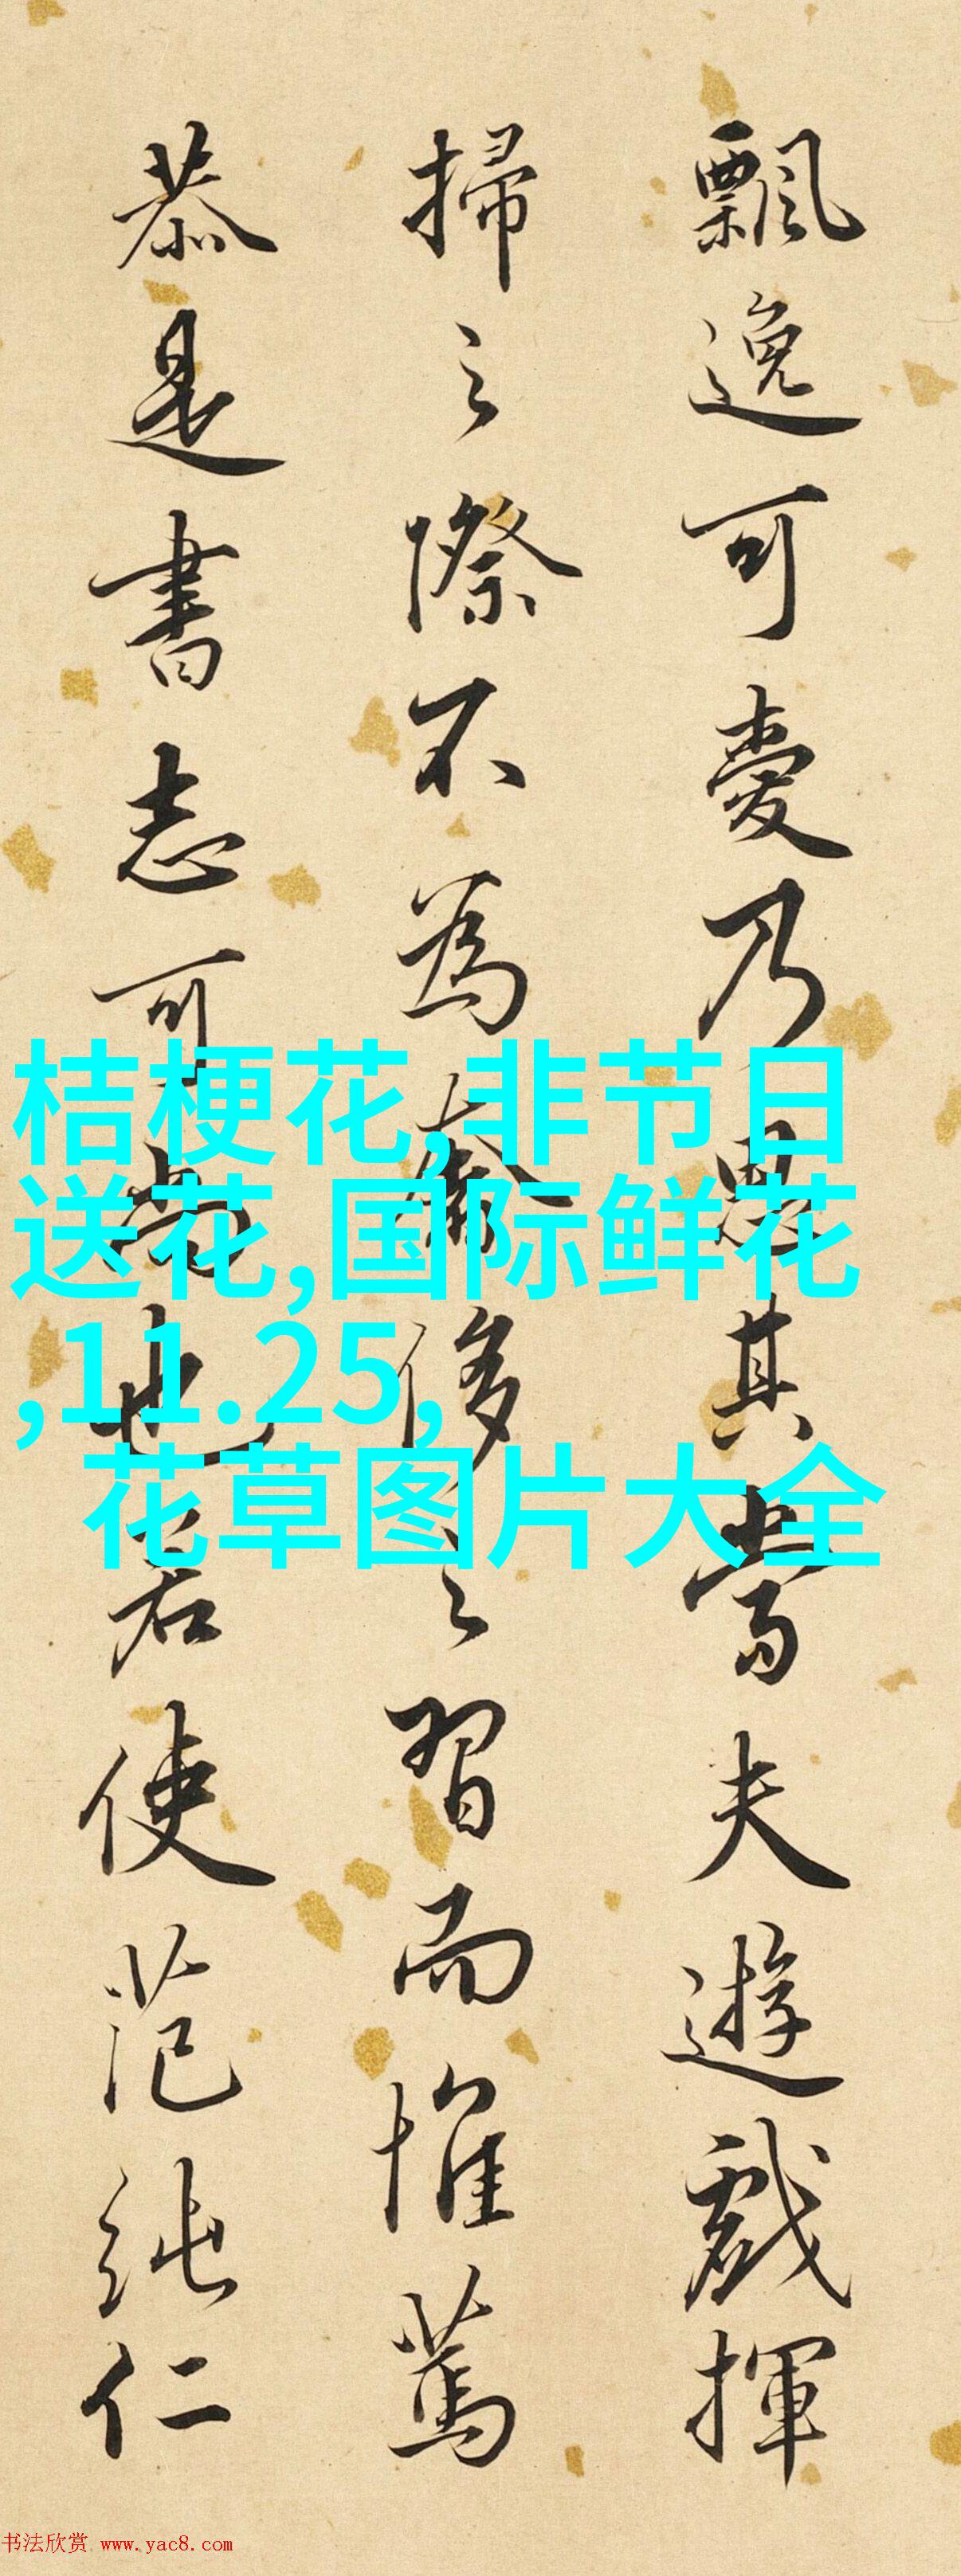 飄逸可愛乃思其當夫遊戲揮
掃之際不為奢侈之習而惟篤
恭是書志可尚也若使范純仁
桔梗花,非节日
送花,国际鲜花
,11.25,
花草图片大全
书法欣赏 www.yac8.com